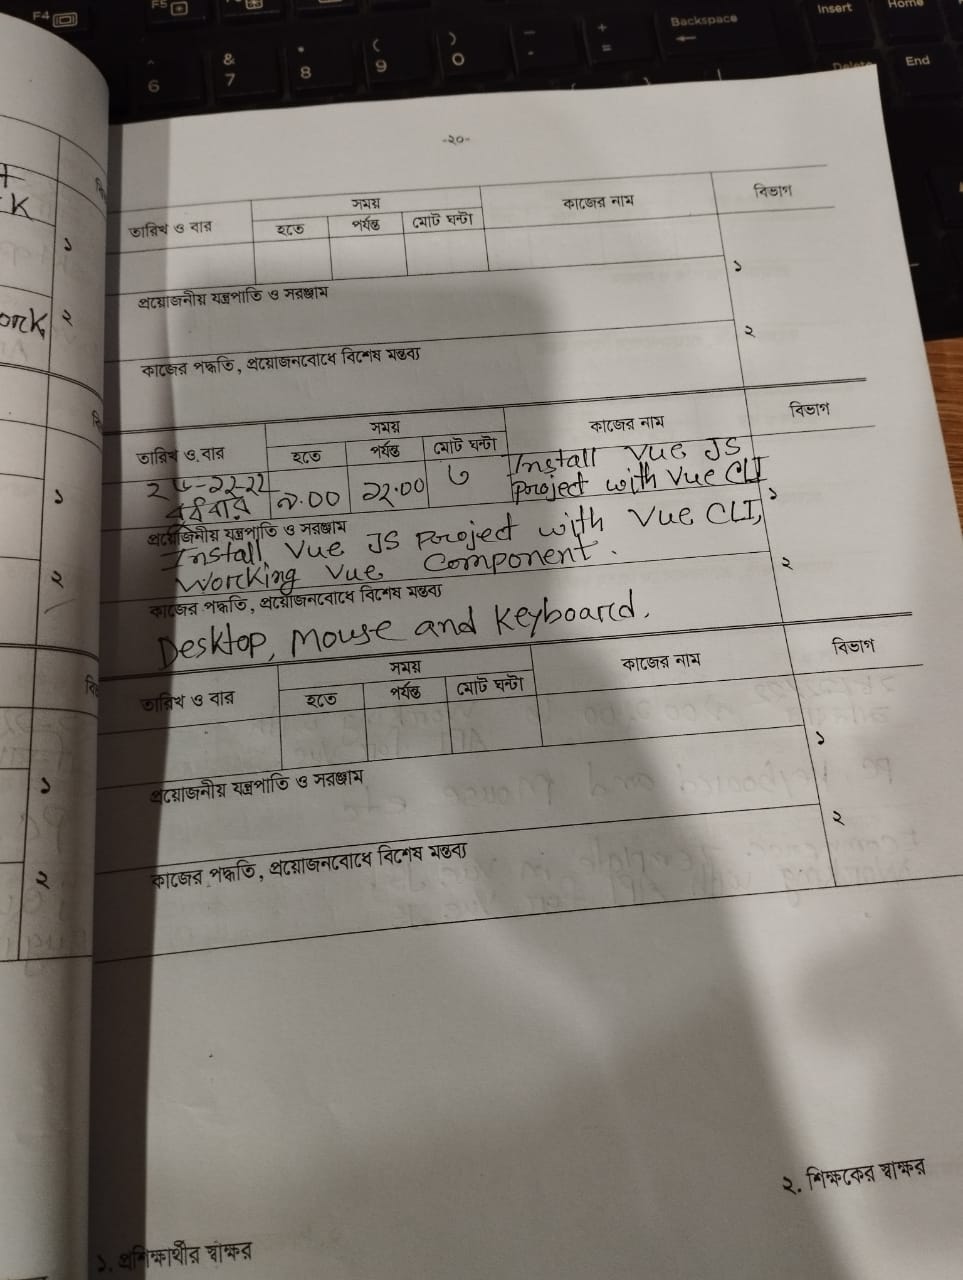 F4
F5
Backspace
Insert
Home
Delete
End
^ 6
& 7
* 8
( 9
) 0
- -
+ =
-২০-
তারিখ ও বার
সময়
হতে
পর্যন্ত
মোট ঘন্টা
কাজের নাম
বিভাগ
১
প্রয়োজনীয় যন্ত্রপাতি ও সরঞ্জাম
২
কাজের পদ্ধতি, প্রয়োজনবোধে বিশেষ মন্তব্য
তারিখ ও বার
সময়
হতে
পর্যন্ত
মোট ঘন্টা
কাজের নাম
বিভাগ
৯.00
১২.00
৩
Install Vue JS
Project with Vue CLI
১
প্রয়োজনীয় যন্ত্রপাতি ও সরঞ্জাম
Install Vue JS Project with Vue CLI,
Working Vue Component.
২
কাজের পদ্ধতি, প্রয়োজনবোধে বিশেষ মন্তব্য
Desktop, Mouse and Keyboard.
তারিখ ও বার
সময়
হতে
পর্যন্ত
মোট ঘন্টা
কাজের নাম
বিভাগ
১
প্রয়োজনীয় যন্ত্রপাতি ও সরঞ্জাম
২
কাজের পদ্ধতি, প্রয়োজনবোধে বিশেষ মন্তব্য
২. শিক্ষকের স্বাক্ষর
১. প্রশিক্ষার্থীর স্বাক্ষর